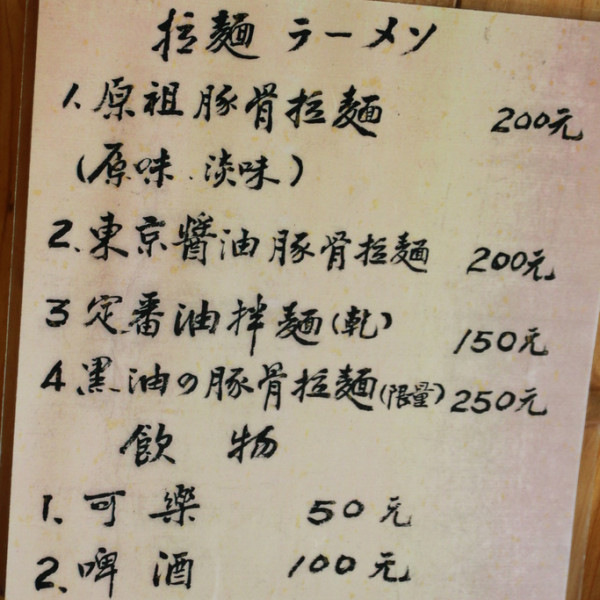 拉麵 ラーメン
1.原祖豚骨拉麵 200元
(原味.淡味)
2.東京醬油豚骨拉麵 200元
3定番油拌麵(乾) 150元
4黑油の豚骨拉麵(限量)250元
飲物
1.可樂 50元
2.啤酒 100元